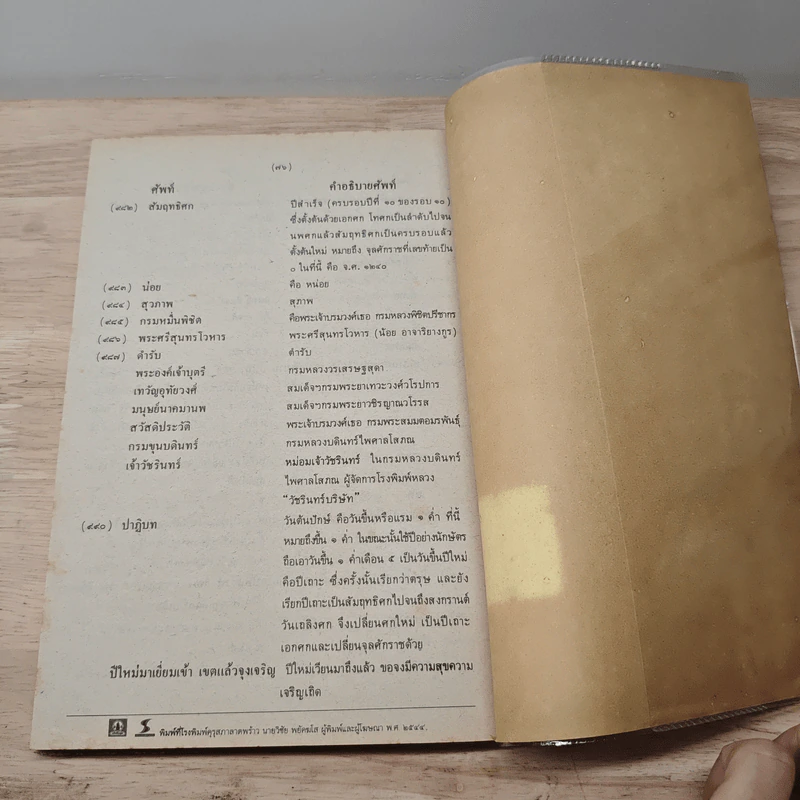 (๗๖)
ศัพท์ คำอธิบายศัพท์
(๙๘๒) สัมฤทธิศก ปีสำเร็จ (ครบรอบปีที่ ๑๐ ของรอบ ๑๐)
ซึ่งตั้งต้นด้วยเอกศก โทศกเป็นลำดับไปจน
นพศกแล้วสัมฤทธิศกเป็นครบรอบแล้ว
ตั้งต้นใหม่ หมายถึง จุลศักราชที่เลขท้ายเป็น
๐ ในที่นี้ คือ จ.ศ. ๑๒๔๐
(๙๘๓) น่อย คือ หน่อย
(๙๘๔) สุวภาพ สุภาพ
(๙๘๕) กรมหมื่นพิชิต คือพระเจ้าบรมวงศ์เธอ กรมหลวงพิชิตปรีชากร
(๙๘๖) พระศรีสุนทรโวหาร พระศรีสุนทรโวหาร (น้อย อาจาริยางกูร)
(๙๘๗) ตำรับ ตำรับ
พระองค์เจ้าบุตรี กรมหลวงวรเสรฐสุดา
เทวัญอุทัยวงศ์ สมเด็จฯกรมพระยาเทวะวงศ์วโรปการ
มนุษย์นาคมานพ สมเด็จฯกรมพระยาวชิรญาณวโรรส
สวัสดิประวัติ พระเจ้าบรมวงศ์เธอ กรมพระสมมตอมรพันธุ์
กรมขุนบดินทร์ กรมหลวงบดินทร์ไพศาลโสภณ
เจ้าวัชรินทร์ หม่อมเจ้าวัชรินทร์ ในกรมหลวงบดินทร์
ไพศาลโสภณ ผู้จัดการโรงพิมพ์หลวง
“วัชรินทร์บริษัท”
(๙๙๐) ปาฏิบท วันต้นปักษ์ คือวันขึ้นหรือแรม ๑ ค่ำ ที่นี้
หมายถึงขึ้น ๑ ค่ำ ในขณะนั้นใช้ปีอย่างนักษัตร
ถือเอาวันขึ้น ๑ ค่ำเดือน ๕ เป็นวันขึ้นปีใหม่
คือปีเถาะ ซึ่งครั้งนั้นเรียกว่าตรุษ และยัง
เรียกปีเถาะเป็นสัมฤทธิศกไปจนถึงสงกรานต์
วันเถลิงศก จึงเปลี่ยนศกใหม่ เป็นปีเถาะ
เอกศกและเปลี่ยนจุลศักราชด้วย
ปีใหม่มาเยี่ยมเข้า เขตแล้วจุงเจริญ ปีใหม่เวียนมาถึงแล้ว ขอจงมีความสุขความ
เจริญเถิด
พิมพ์ที่โรงพิมพ์คุรุสภาลาดพร้าว นายวิชัย พยัคฆโส ผู้พิมพ์และผู้โฆษณา พ.ศ. ๒๕๔๔